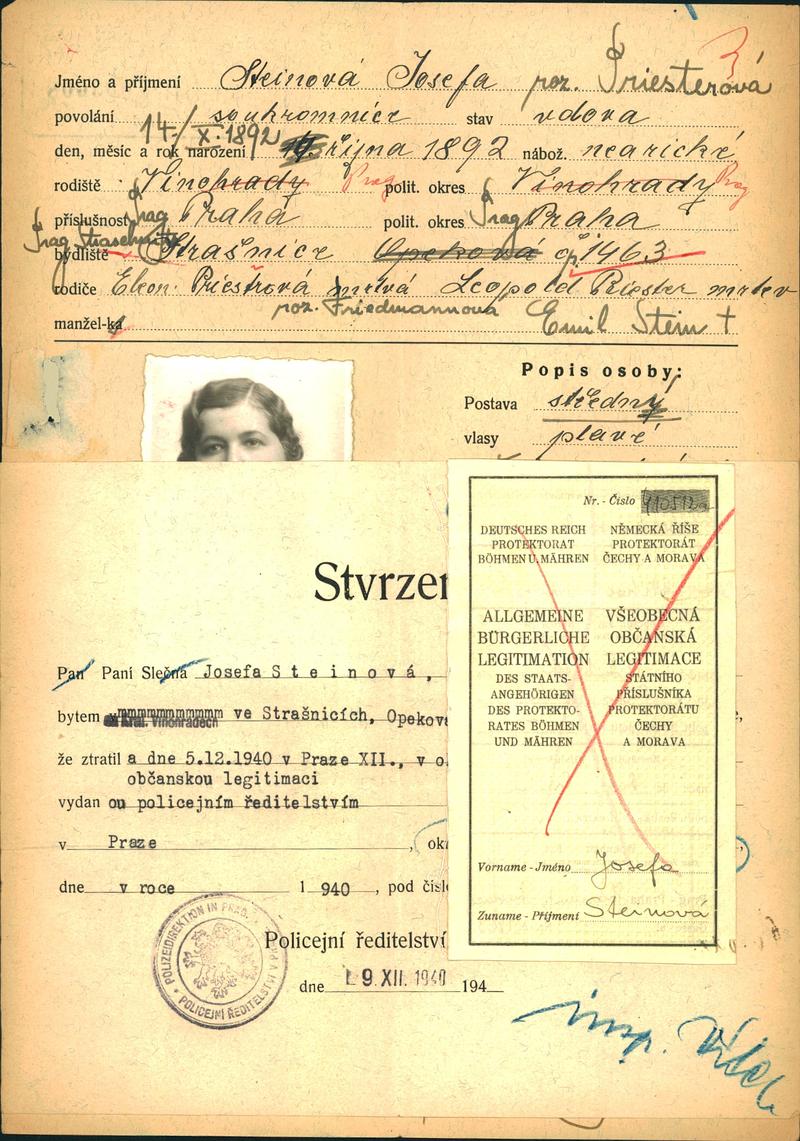 Jméno a příjmení Steinová Josefa roz. Priesterová
povolání soukromnice stav vdova
14./X.1892
den, měsíc a rok narození října 1892 nábož. nearické
rodiště Vinohrady Prag polit. okres Vinohrady Prag
příslušnost Prag Praha polit. okres Prag Praha
Prag Straschnitz
bydliště Strašnice Opeková čp. 1463
rodiče Eleon. Priestrová mrtvá Leopold Priester mrtev
roz. Friedmannová
manžel-ka Emil Stein †
Popis osoby:
Postava střední
vlasy plavé
Stvrzen
Pan Paní Slečna Josefa Steinová,
bytem Král. Vinohradech ve Strašnicích, Opekov
že ztratil a dne 5.12.1940 v Praze XII., v o
občanskou legitimaci
vydanou policejním ředitelstvím
v Praze, ok
dne v roce 1940, pod čísl
Policejní ředitelství
dne 9.XII.1940 194
POLIZEIDIREKTION IN PRAG
POLICEJNÍ ŘEDITELSTVÍ V PRAZE
Nr. - Číslo
DEUTSCHES REICH
PROTEKTORAT
BÖHMEN U. MÄHREN
NĚMECKÁ ŘÍŠE
PROTEKTORÁT
ČECHY A MORAVA
ALLGEMEINE
BÜRGERLICHE
LEGITIMATION
DES STAATS-
ANGEHÖRIGEN
DES PROTEKTO-
RATES BÖHMEN
UND MÄHREN
VŠEOBECNÁ
OBČANSKÁ
LEGITIMACE
STÁTNÍHO
PŘÍSLUŠNÍKA
PROTEKTORÁTU
ČECHY
A MORAVA
Vorname - Jméno Josefa
Zuname - Příjmení Steinová